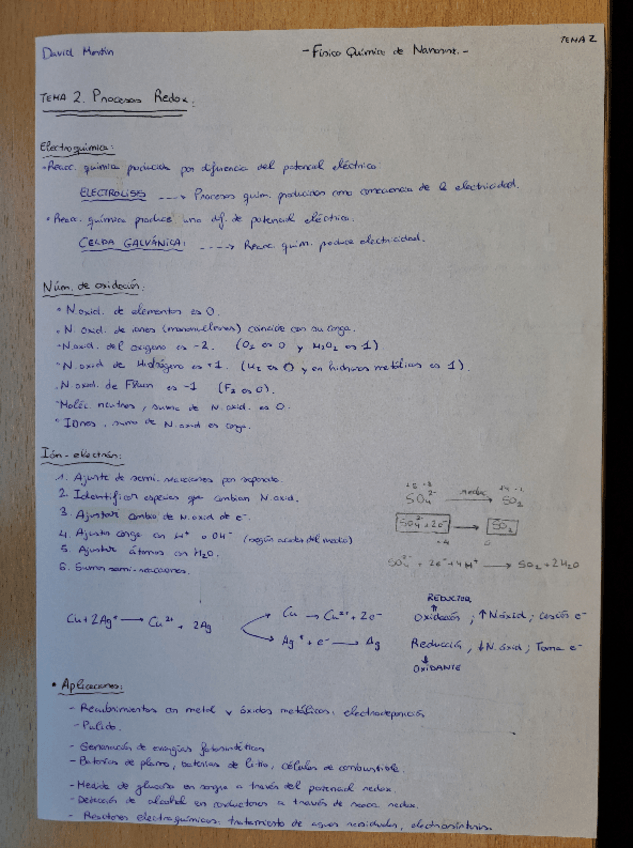 David Martín
- Físico Química de Nanosist. -
TEMA 2
TEMA 2. Procesos Redox.
Electroquímica:
- Reacc. química producida por diferencia del potencial eléctrico:
ELECTROLISIS ----> Procesos quím. producidos como consecuencia de la electricidad.
• Reacc. química produce una dif. de potencial eléctrica.
CELDA GALVÁNICA: ----> Reacc. quím. produce electricidad.
Núm. de oxidación:
• N.oxid. de elementos es 0.
• N. oxid. de iones (mononucleares) coincide con su carga.
• N.oxid. del oxígeno es -2. (O₂ es 0 y H₂O₂ es 1)
• N.oxid de Hidrógeno es +1. (H₂ es 0 y en hidruros metálicos es 1).
• N.oxid. de Flúor es -1 (F₂ es 0).
• Moléc. neutras, suma de N.oxid. es 0.
• Iones, suma de N.oxid es carga.
Ión-electrón:
1. Ajuste de semi-reacciones por separado.
2. Identificar especies que cambian N.oxid.
3. Ajustar cambio de N.oxid de e⁻.
4. Ajustar carga con H⁺ o OH⁻ (según acidez del medio)
5. Ajustar átomos con H₂O.
6. Sumar semi-reacciones.
SO₄²⁻ → SO₂
SO₄²⁻ + 2e⁻ → SO₂
-4 0
SO₄²⁻ + 2e⁻ + 4H⁺ → SO₂ + 2H₂O
Cu + 2Ag⁺ → Cu²⁺ + 2Ag
Cu → Cu²⁺ + 2e⁻
Ag⁺ + e⁻ → Ag
REDUCTOR
↑
Oxidación; ↑N.oxid; Cesión e⁻
Reducción, ↓N.oxid; Toma e⁻
↓
OXIDANTE
• Aplicaciones:
- Recubrimientos con metal y óxidos metálicos: electrodeposición
- Pulido.
- Generación de energías fotosintéticas
- Baterías de plomo, baterías de litio, células de combustible.
- Medida de glucosa en sangre a través del potencial redox.
- Detección de alcohol en conductores a través de reacc. redox.
- Reactores electroquímicos: tratamiento de aguas residuales, electrosíntesis.